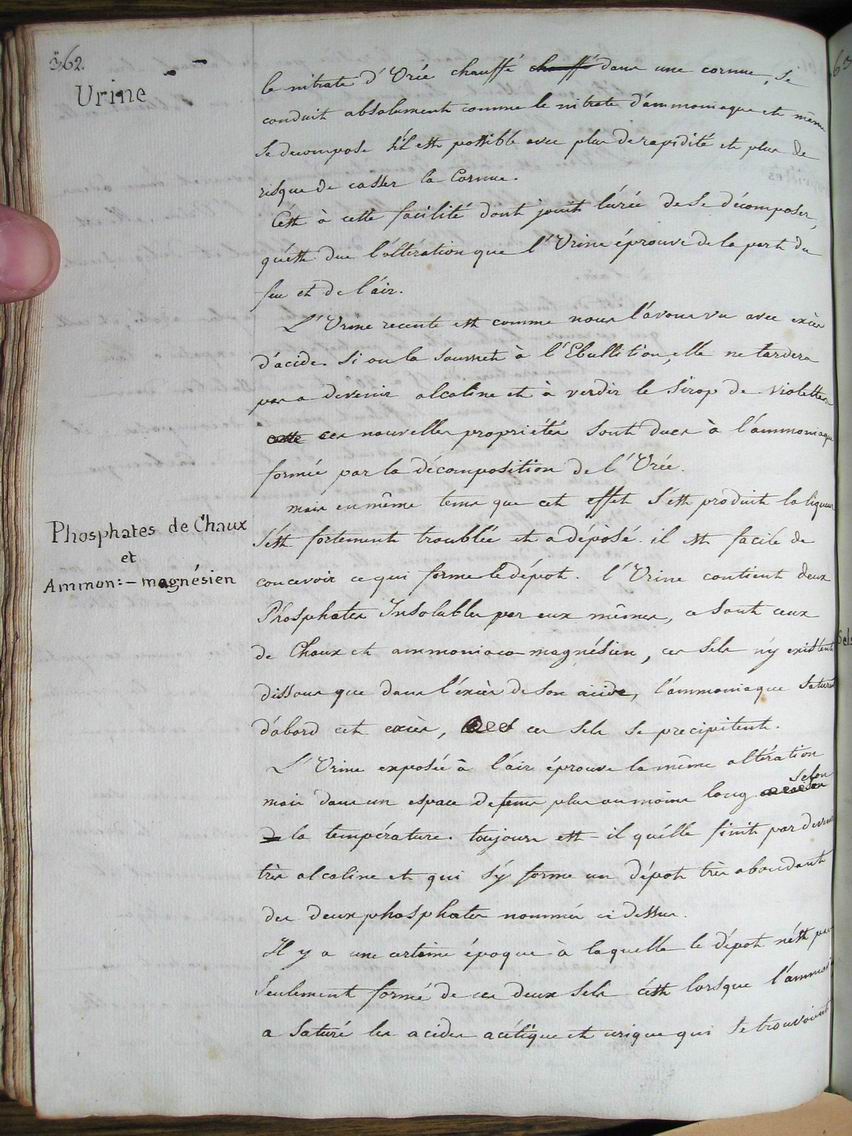 362.
Urine
le nitrate d'Urée chauffé chauffé dans une cornue, se
conduit absolument comme le nitrate d'ammoniaque et même
se decompose s'il est possible avec plus de rapidité et plus de
risque de casser la Cornue.
C'est à cette facilité dont jouit l'urée de se décomposer,
qu'est due l'altération que l'Urine éprouve de la part du
feu et de l'air.
L'Urine recente est comme nous l'avons vu avec excès
d'acide. Si on la soumet à l'Ebullition, elle ne tardera
pas a devenir alcaline et à verdir le sirop de violettes
cette ces nouvelles propriétés sont dues à l'ammoniaque
formée par la décomposition de l'Urée.
mais en même tems que cet effet s'est produit la liqueur
Phosphates de Chaux
et
Ammon:- magnésien
s'est fortement troublée et a déposé. il est facile de
concevoir ce qui forme le dépot. l'Urine contient deux
Phosphates Insolubles par eux mêmes, ce sont ceux
de Chaux et ammoniaco magnésien, ces sels n'y existent
dissous que dans l'excès de son acide, l'ammoniaque sature
d'abord cet excès, ces sels se precipitent.
L'Urine exposée à l'air éprouve la même altération
mais dans un espace de tems plus ou moins long selon
la température. toujours est-il qu'elle finit par devenir
très alcaline et qui s'y forme un dépot très abondant
des deux phosphates nommés ci dessus.
Il y a une certaine époque à laquelle le dépot n'est pas
seulement formé de ces deux sels c'est lorsque l'ammo
a saturé les acides acétique et urique qui se trouvoient